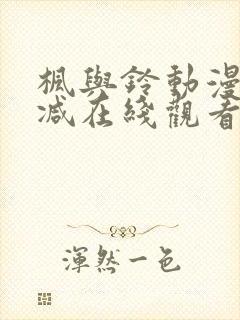 楓與鈴動漫
减在綫觀看
渾然一色